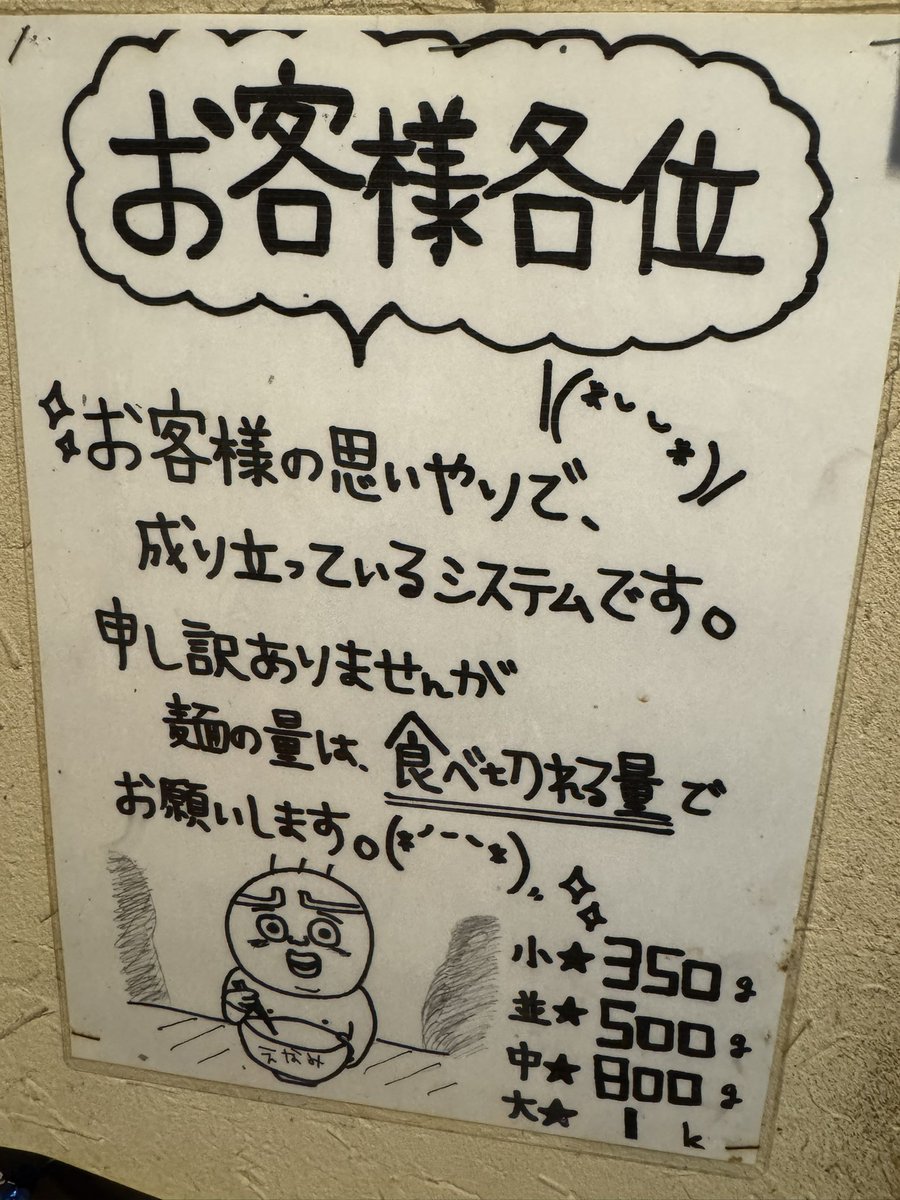 お客様各位
お客様の思いやりで、
成り立っているシステムです。
申し訳ありませんが
麺の量は、食べ切れる量で
お願いします。
えなみ
小★350g
並★500g
中★800g
大★1k